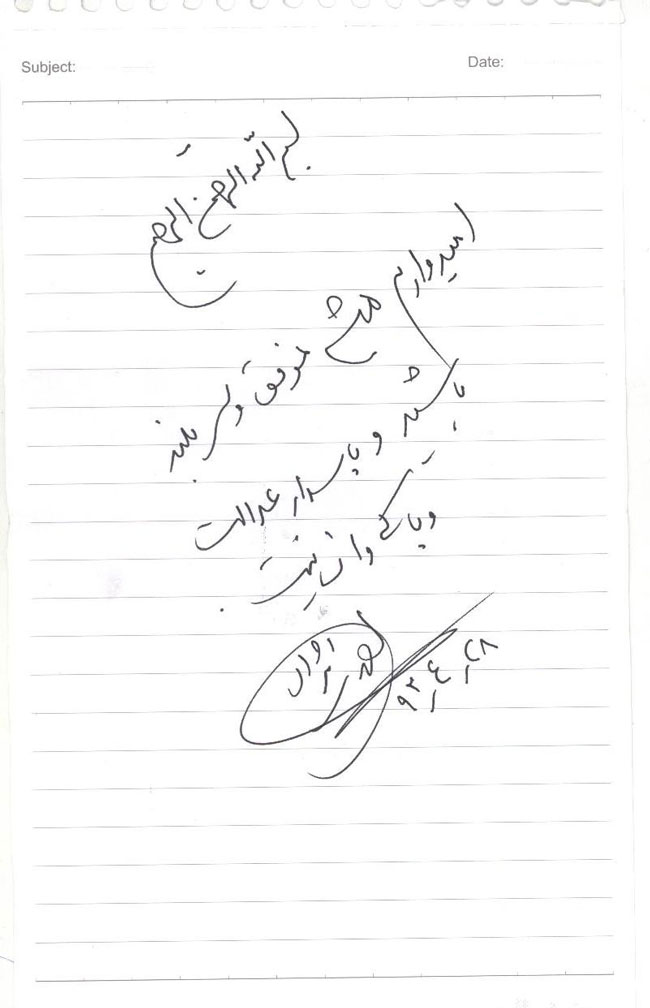 Subject:
Date:
بسم الله الرحمن الرحیم
امیدوارم همه موفق و سربلند
باشید و پاسدار عدالت
و پاکی و انسانیت.
۹۳/۴/۲۸